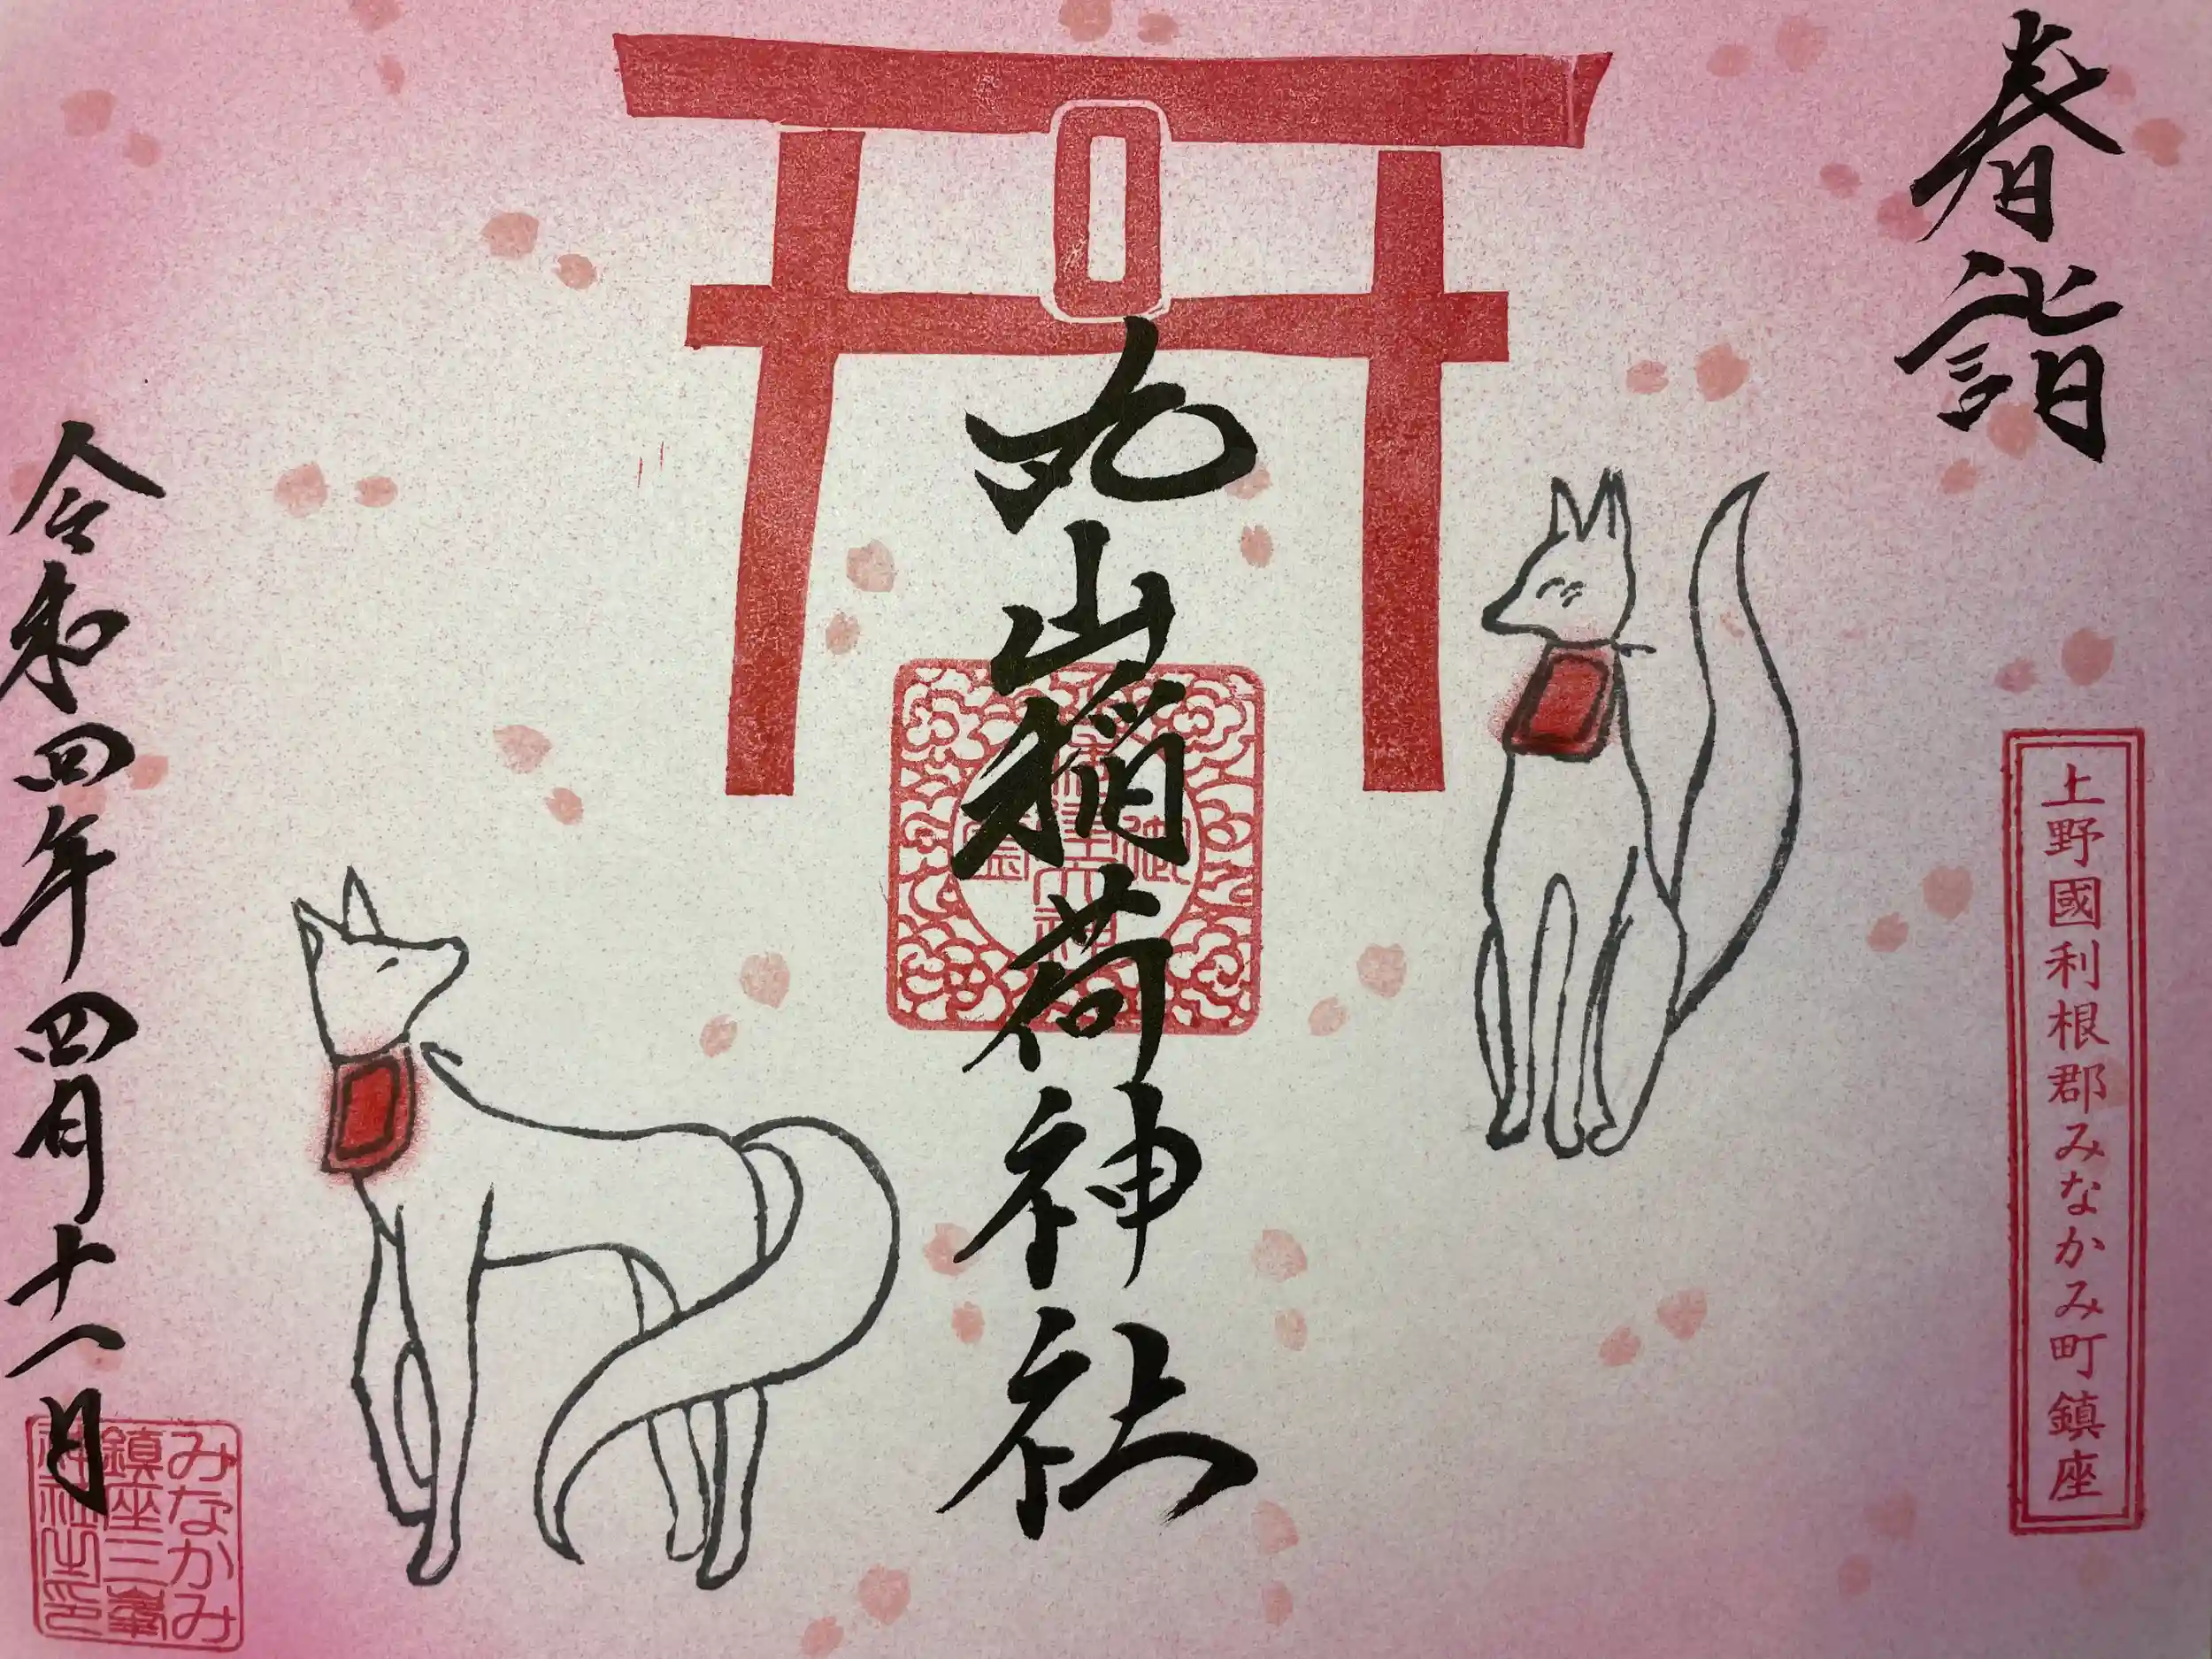 春詣
上野國利根郡みなかみ町鎮座
丸山稲荷神社
令和四年四月十八日
みなかみ
鎮座三峯
神社之印